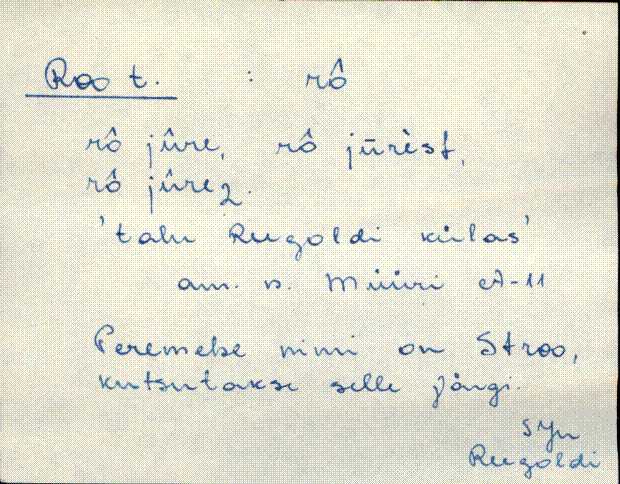 Roo t. : rô
rô jûre, rô jūrèst,
rô jûrez.
'talu Reegoldi külas'
am. n. Müüri A-11
Peremehe nimi on Stroo,
kutsutakse selle järgi.
Reegoldi